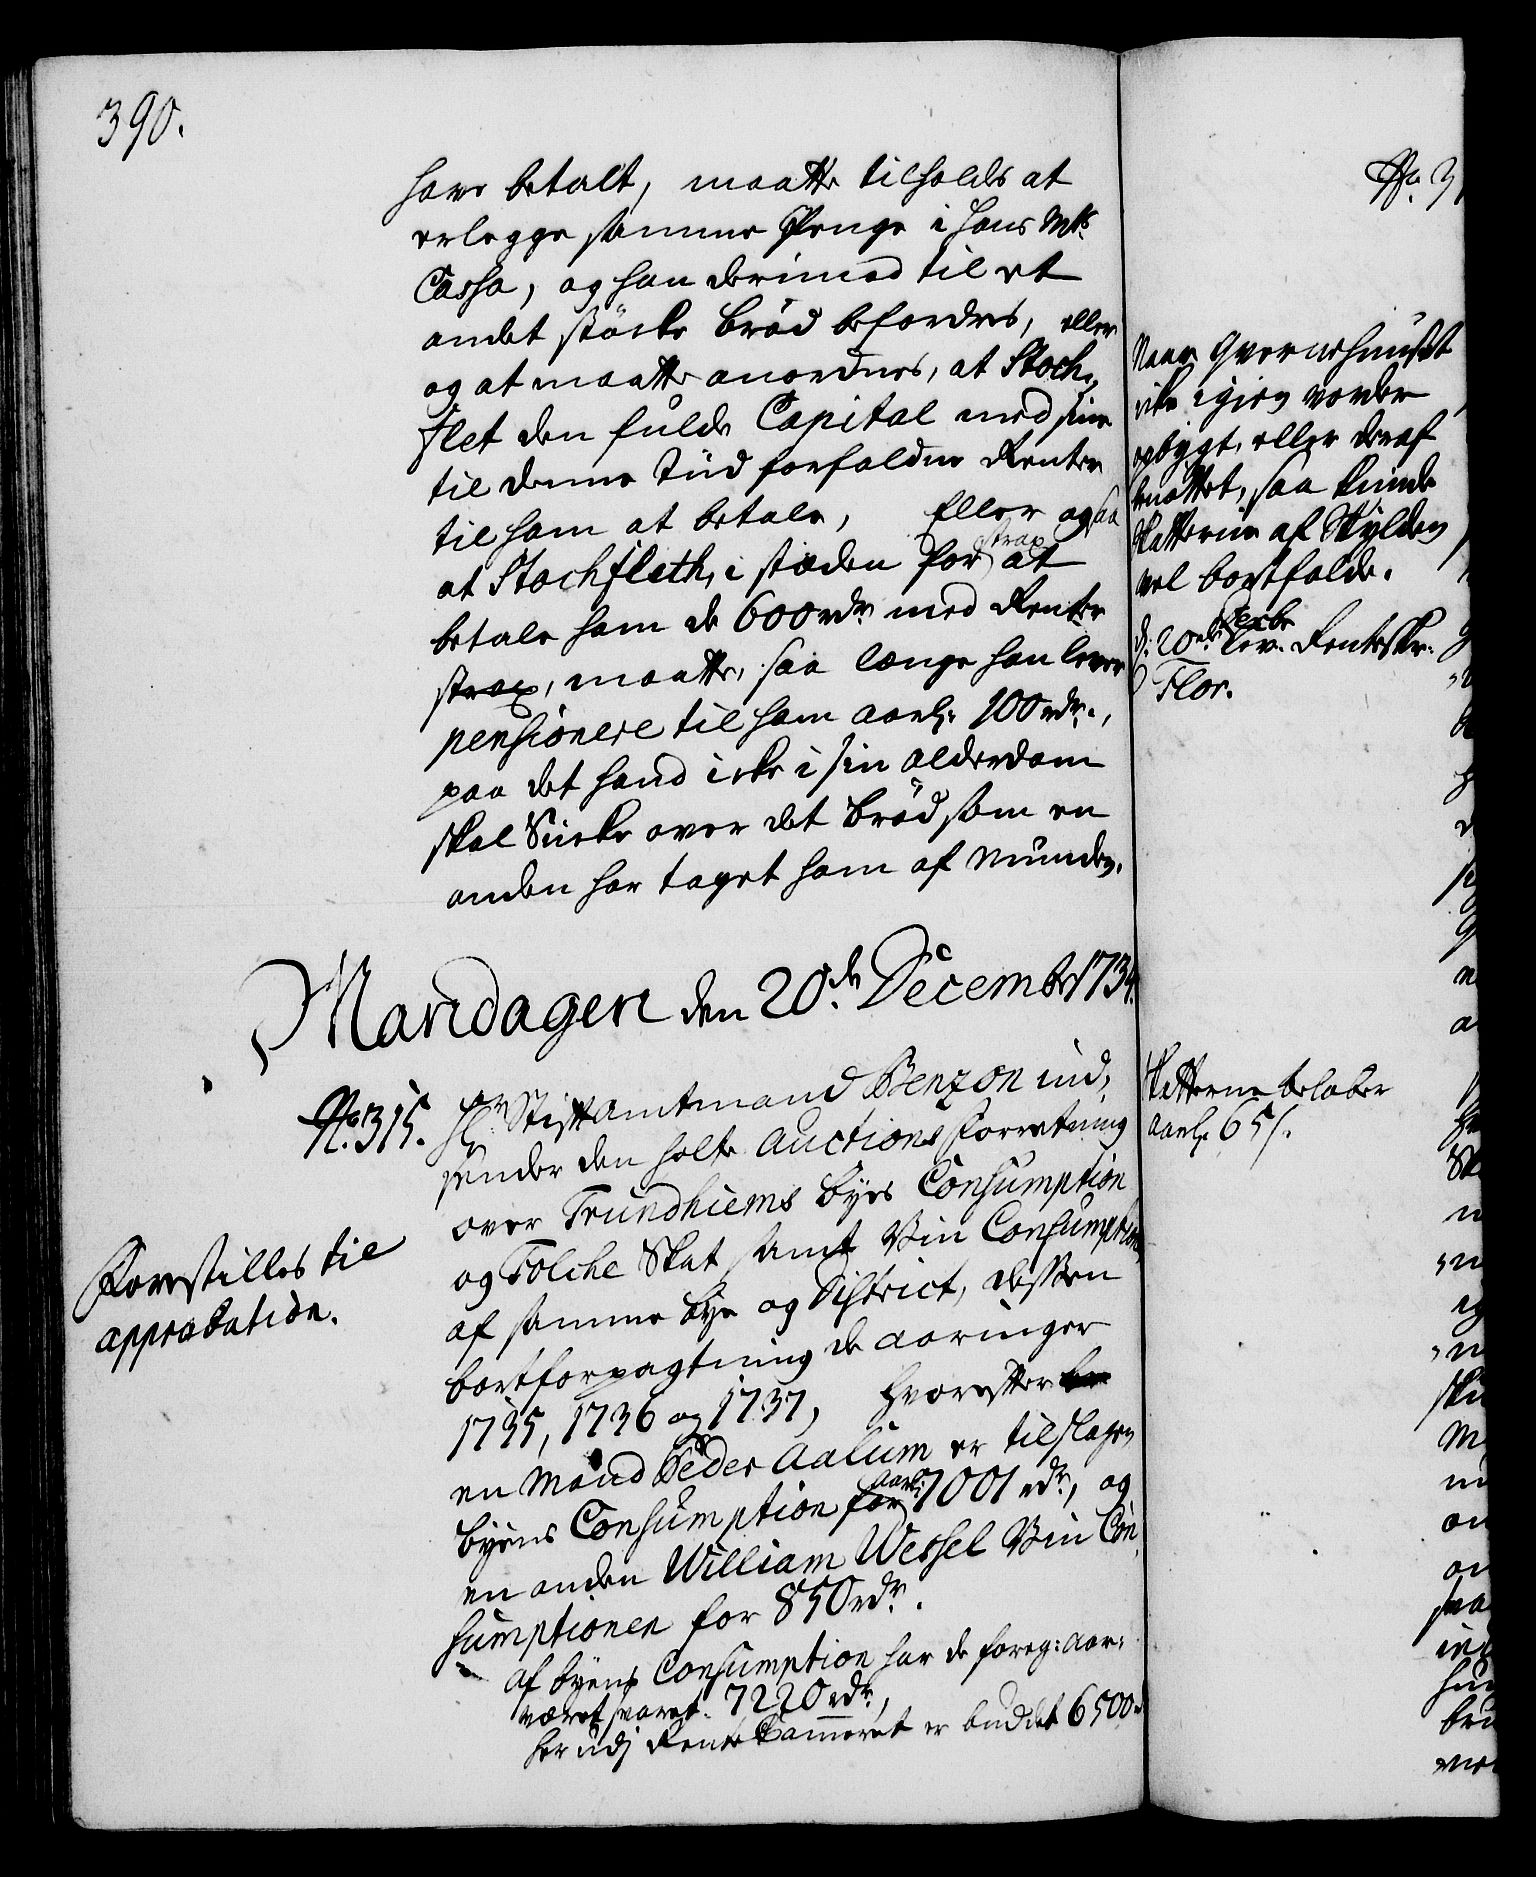 390.
have betalt, maatte tilholdes at
erlegge samme Penge i Hans Mts.
Cassa, og han derimod til et
andet støcke brød befordres, eller
og at maatte anordnes, at Stoch,
flet den fulde Capital med sine
til denne Tiid forfaldne Renter
til ham at betale, Eller og saa
at Stochfleth, i stæden for strax at
betale ham de 600 rdr. med Renter
strax, maatte, saa længe han lever
pensionere til ham aarl: 100 rdr.,
paa det hand icke i sin alderdom
skal Sucke over det brød som en
anden har taget ham af Munden.
Mandagen den 20de Decembr 1734.
No. 315. Hr Stiftamtmand Benzon ind,
sender den holte Auctions Forretning
over Trundhiems byes Consumption
og Folche Skat samt Viin Consumption
af samme bye og District, dessen
bortforpagtning de aaringer
1735, 1736 og 1737, hvorefter
en Mand Peder Aalum er tilslagen
byens Consumption for aarl: 7001 rdr., og
en anden William Wessel Viin Con,
sumptionen for 850 rdr.
af byens Consumption har de foreg: aar
været svaret 7220 rdr,
her udj Rente Cammeret er buddet 6500
Forestilles til
approbation.
No. 3
Naar Qvernehuuset
icke igien vorder
opbygt, eller deraf
nøttet, saa kunde
Skatterne af Skylden
vel bortfalde.
d: 20de Decbr lev. Renteskr.
Flor.
Skatterne beløber
aarl. 65 s.